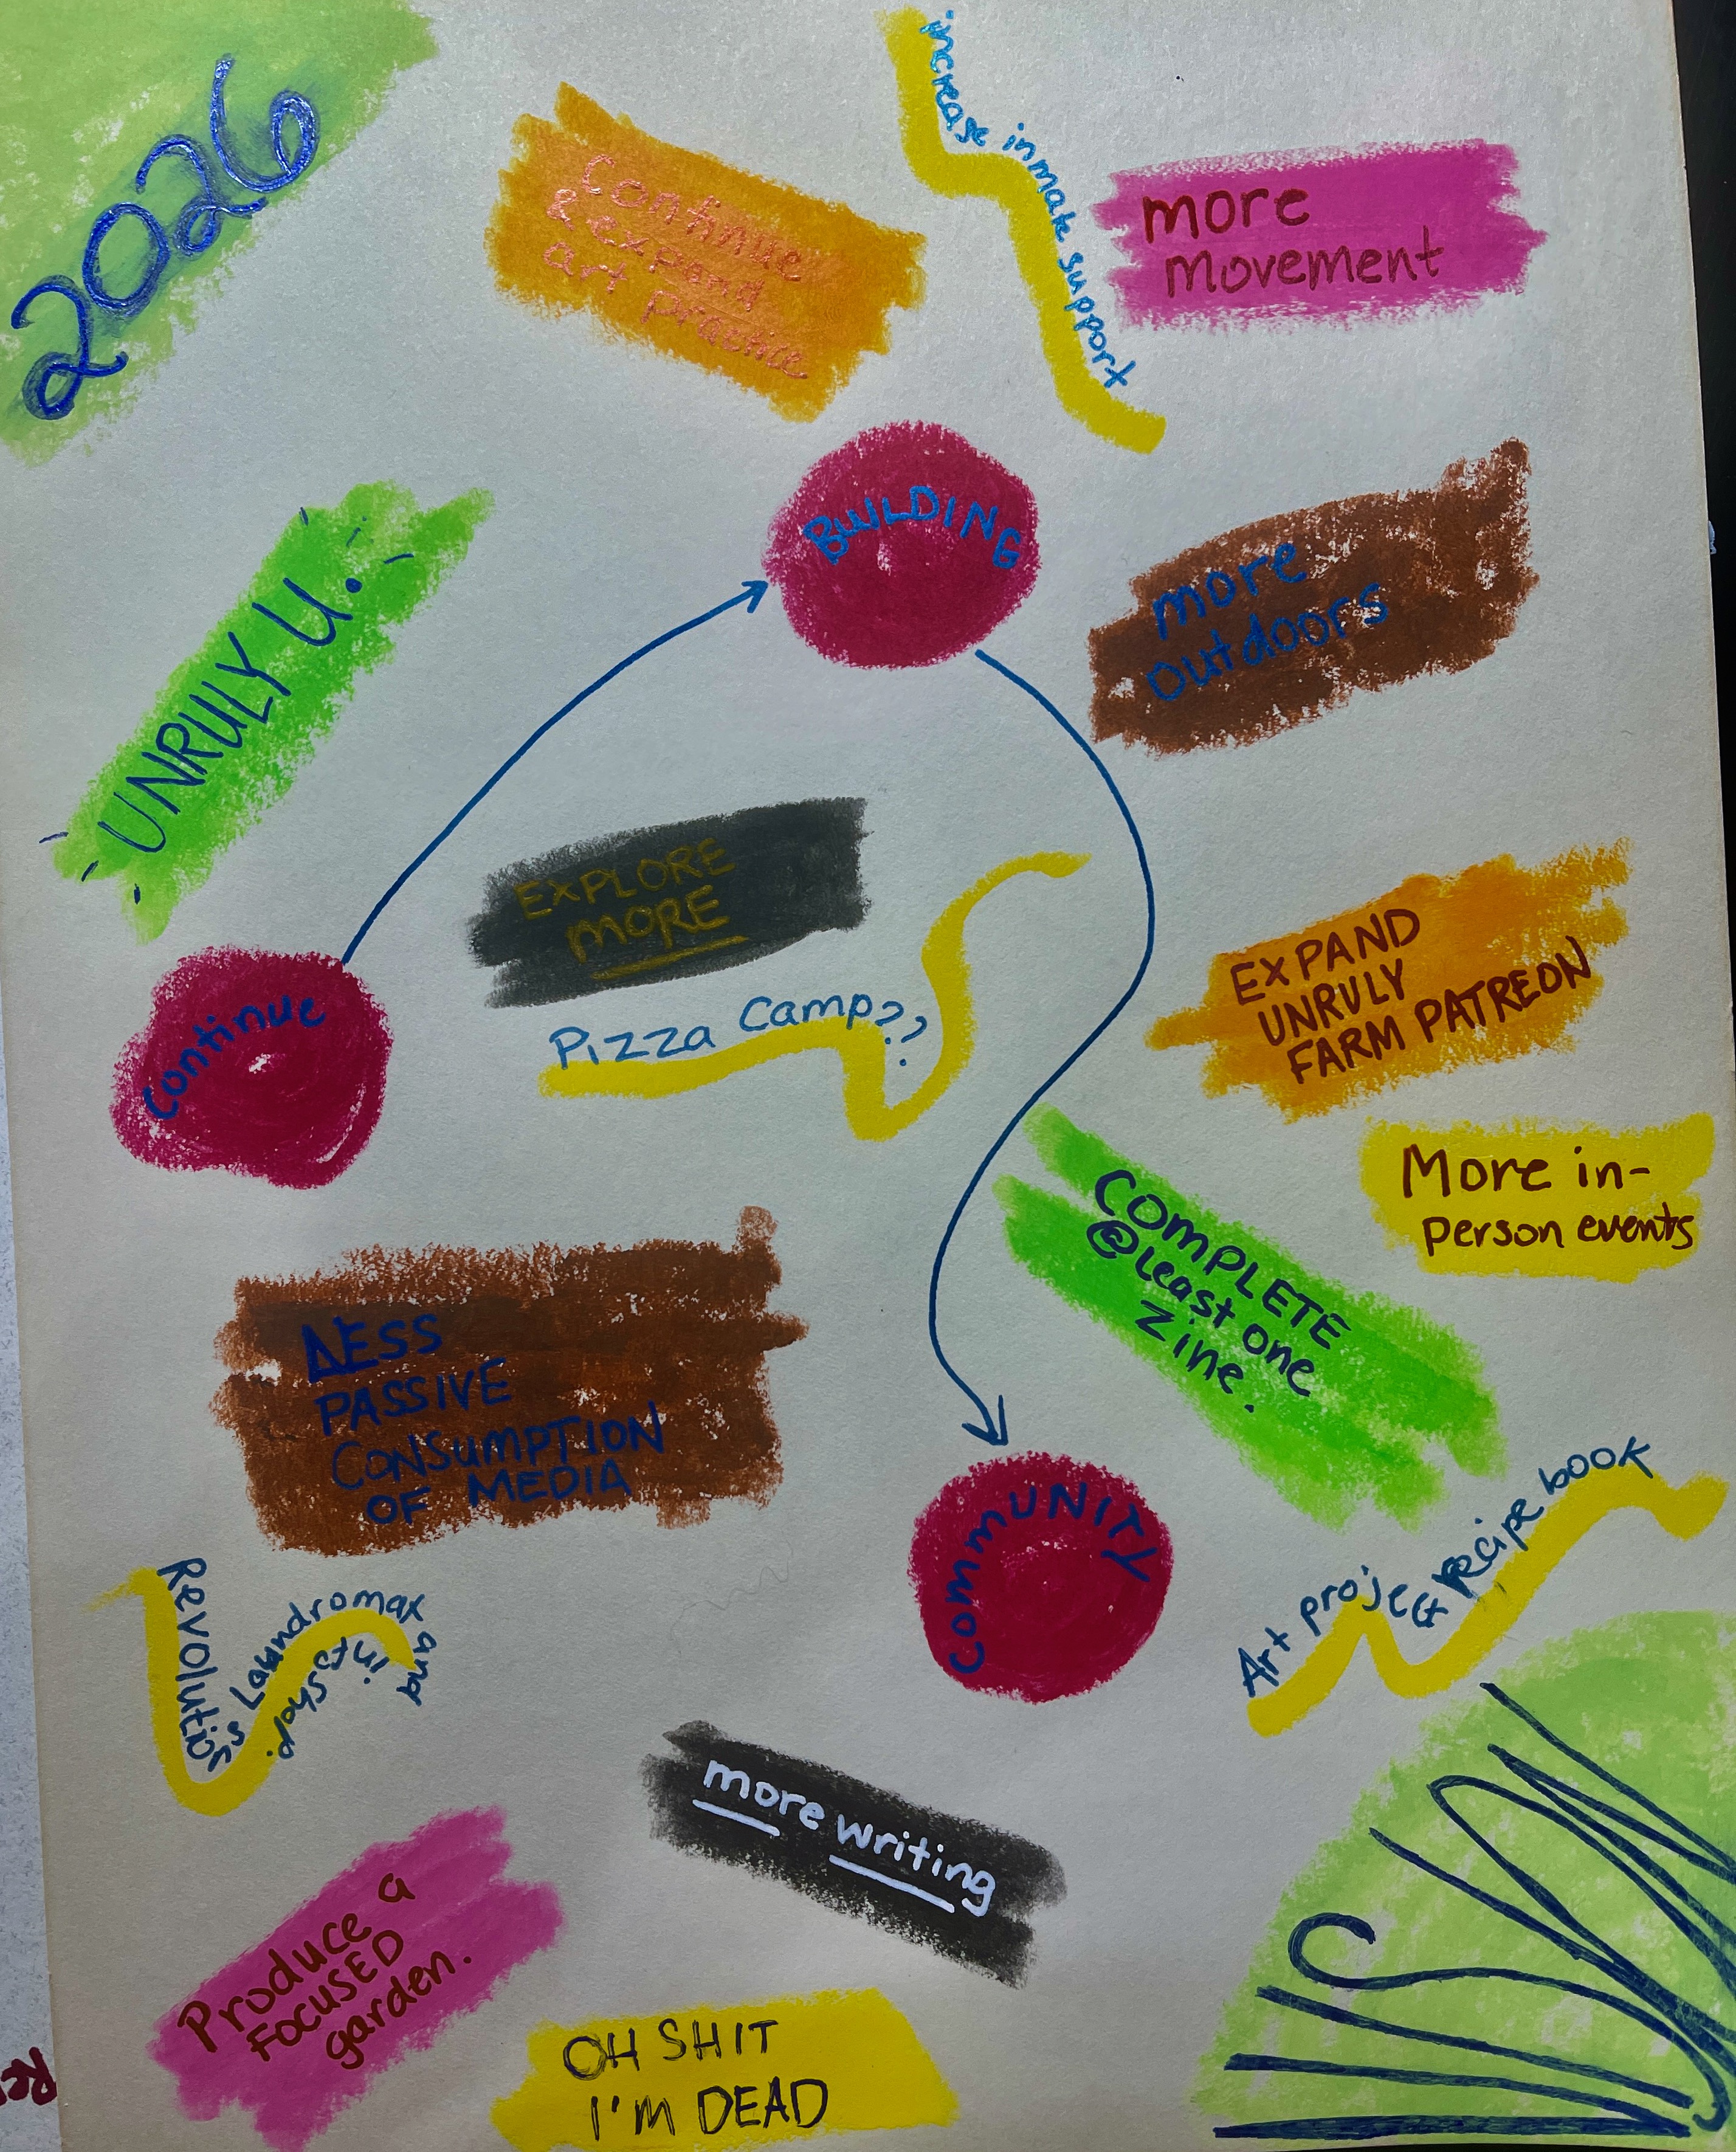 2026
Continue
& expand
art practice
increase inmate support
more
movement
UNRULY U.
BUILDING
more
outdoors
EXPLORE
MORE
Pizza Camp??
Continue
EXPAND
UNRULY
FARM PATREON
More in-
person events
COMPLETE
@ Least one
Zine.
LESS
PASSIVE
CONSUMPTION
OF MEDIA
COMMUNITY
Art project recipe book
Revolution
s Laundromat and
in
shop.
more writing
Produce a
FOCUSED
garden.
OH SHIT
I'M DEAD
Re